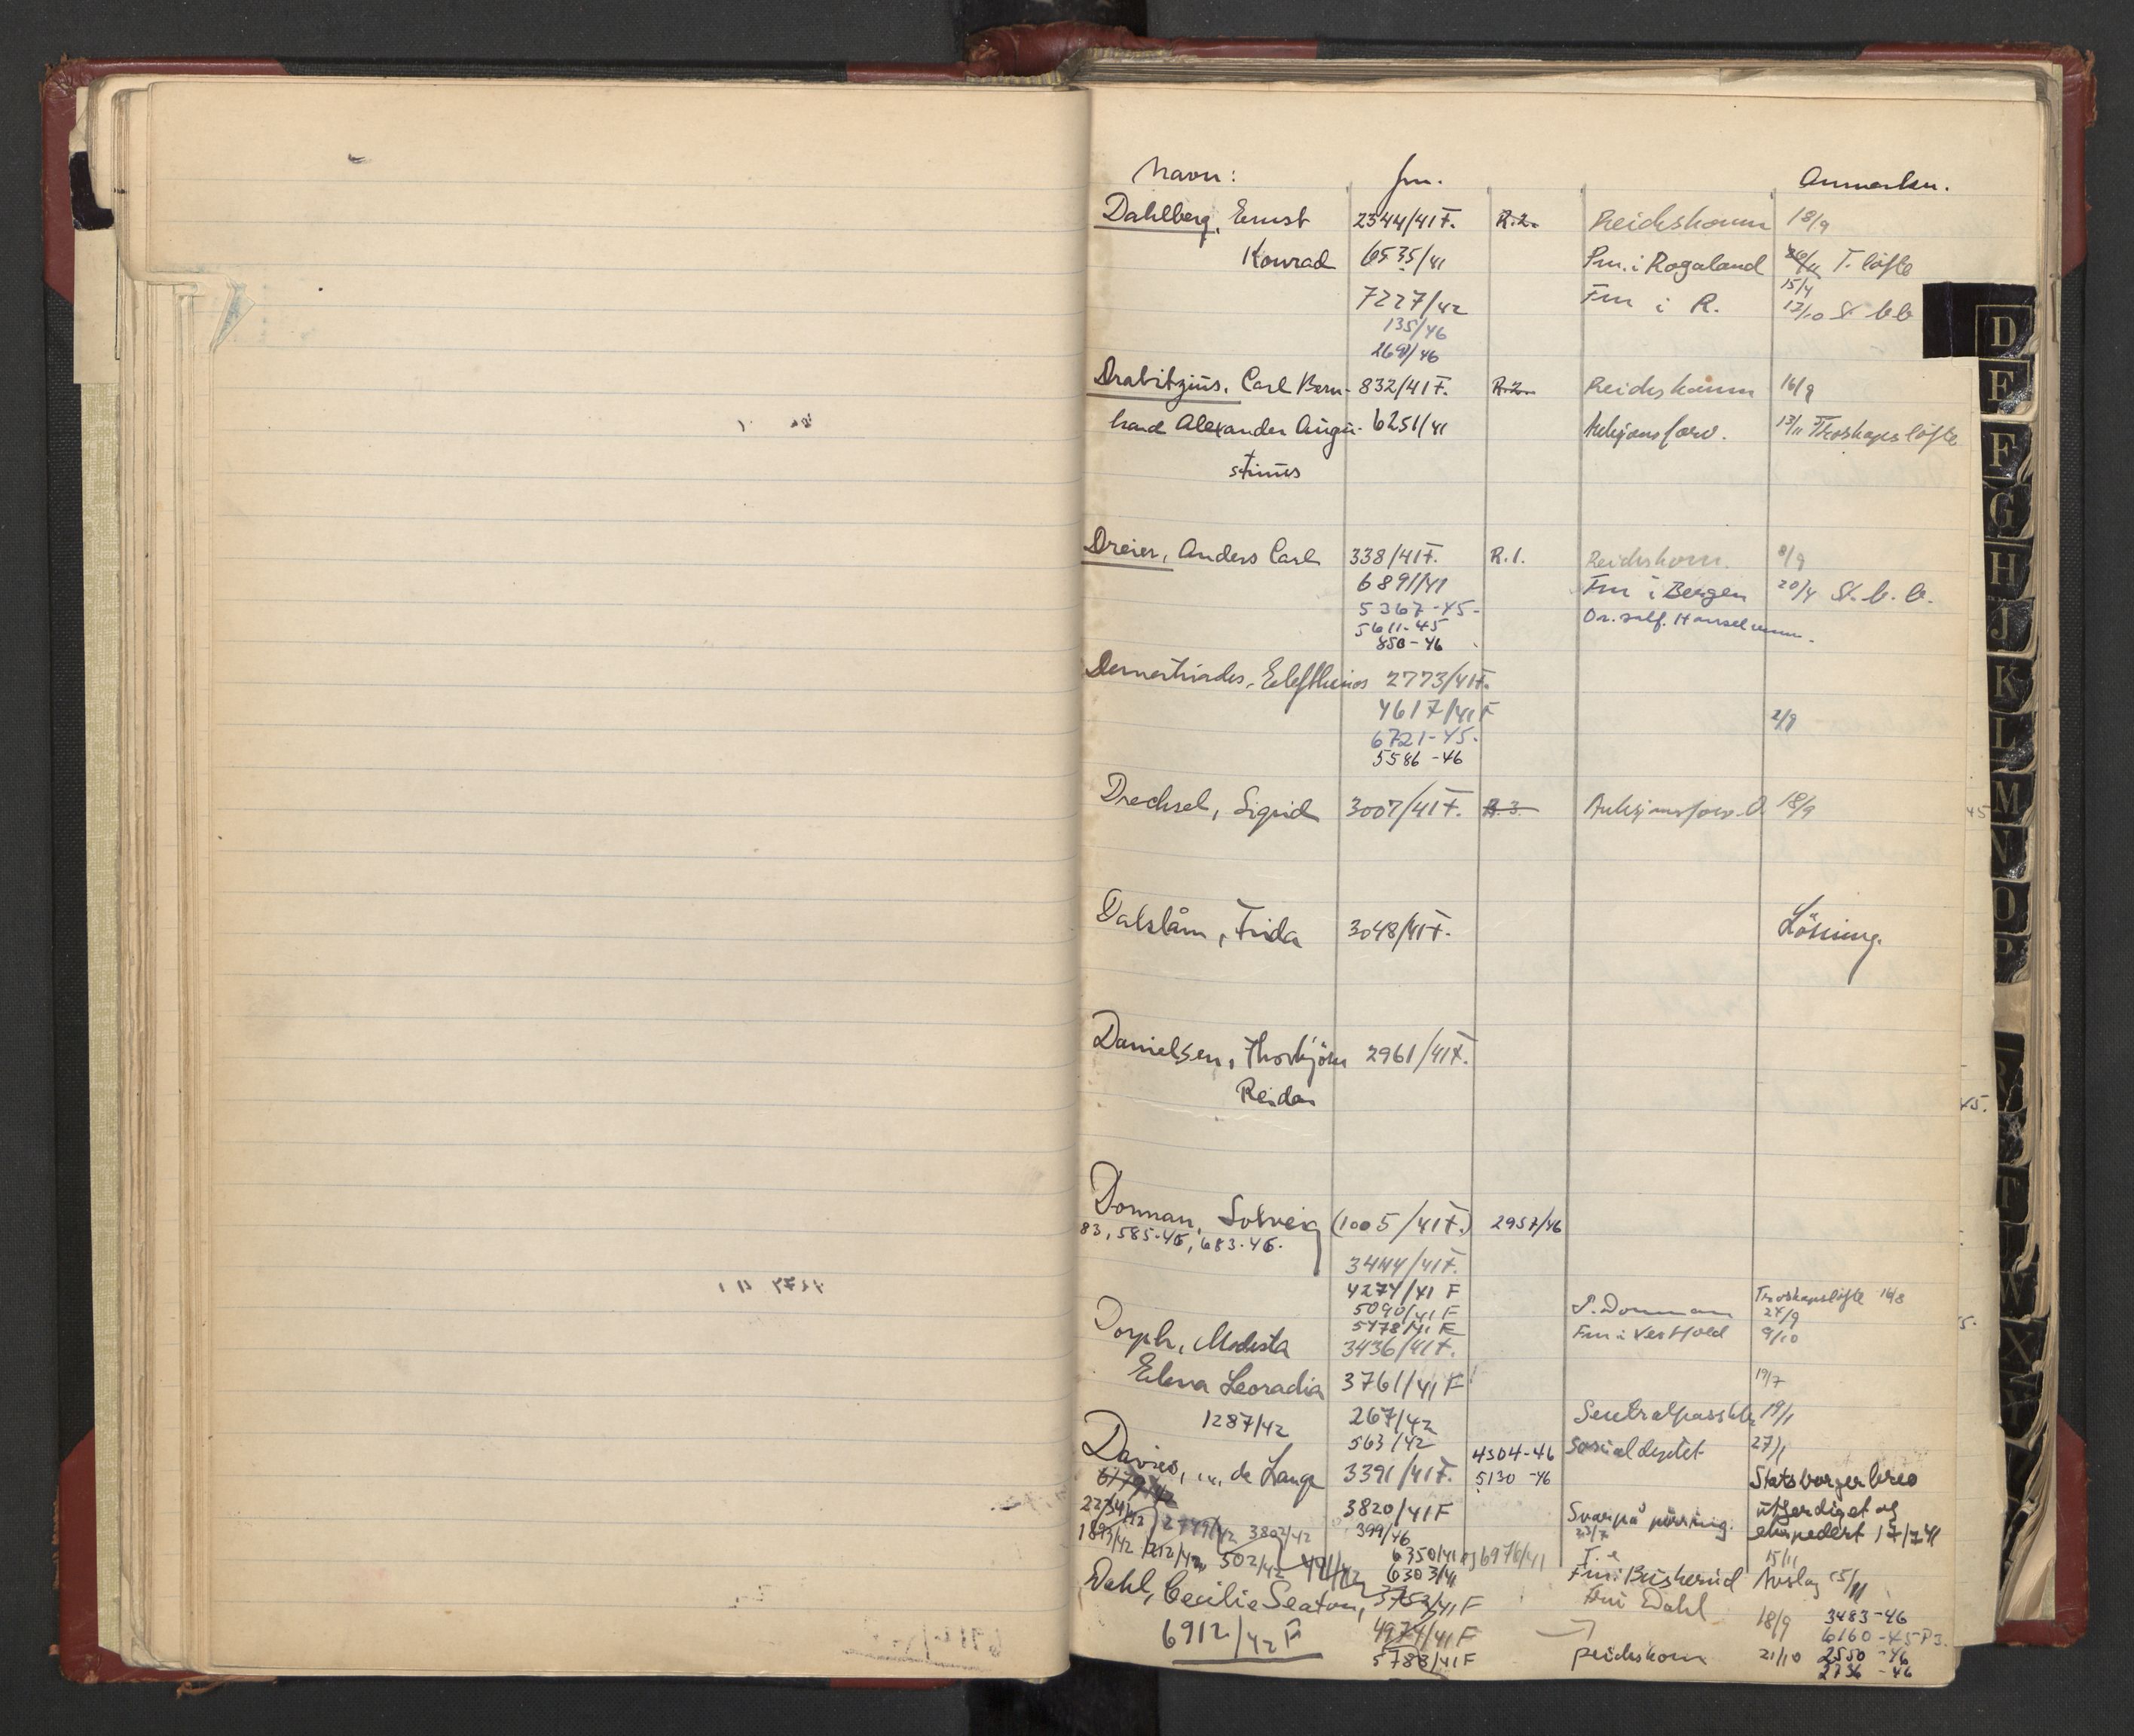 Navn: Jnr. Anmerkn.
Dahlberg, Ernst 2344/41 F. R.2. Reichskomm 18/9
Konrad 6535/41 Pm. i Rogaland T. löfte
15/4
7227/42 Fm i R. 17/10 St. b b
135/46
2690/46
Drabitzius, Carl Bern- 832/41 F. R.2. Reichskomm 16/9
hard Alexander Augu- 6251/41 Auksjonsforv. 13/11 Troskapslöfte
stinus
Dreier, Anders Carl 338/41 F. R.1. Reichskom. 8/9
6891/41 Fm i Bergen 20/4 St. b. b.
5367-45-
5611-45
850-46
Demetriades, Elefterios 2773/41 F.
4617/41 F 2/9
6721-45.
5586-46
Drechsel, Sigrid 3007/41 F. R.3. Auksjonsforv. O. 18/9
Dalslåm, Frida 3048/41 F. Lösning.
Danielsen, Thorbjörn 2961/41 F.
Reidar
Donnan, Solveig (1005/41 F.) 2957/46
83, 585-46, 683-46.
3444/41 F.
4274/41 F Troskapslöfte 16/8
5090/41 F S. Donnan 24/9
5478/41 F Fm i Vestfold 9/10
Dorph, Modesta 3436/41 F.
Elena Leoradia 3761/41 F 19/7
1287/42 267/42 Sentralpassktr 19/1
563/42 4304-46 Sosialdeptet 27/1
Davies, de Lange 3391/41 F. 5130-46 Statsborgerbrev
6179/42
3820/41 F Svar på purring. utferdiget og
2749/42 3802/42 399/46 23/7 ekspedert 17/7 41
1893/42 212/42 502/42 6350/41 og 6976/41 15/11
6303/41 Fm i Buskerud Avslag 15/11
Dahl, Cecilie Seaton, 3753/41 F Fru Dahl 18/9 3483-46
6912/42 F 4974/41 F 6160-45 P3.
5788/41 F Reichskom 21/10 2550-46
2736-46
D
E
F
G
H
J
K
L
M
N
O
P
R
T
W
X